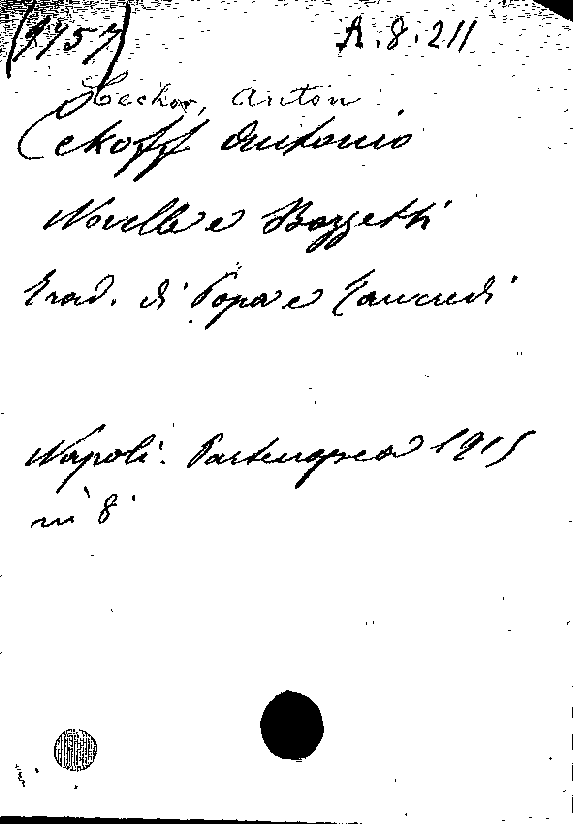 (9757)
A.8.211
Čechov, Anton
Cekoff Antonio
Novelle e Bozzetti
Trad. di Papa e Tancredi
Napoli. Partenopea 1915
in 8°